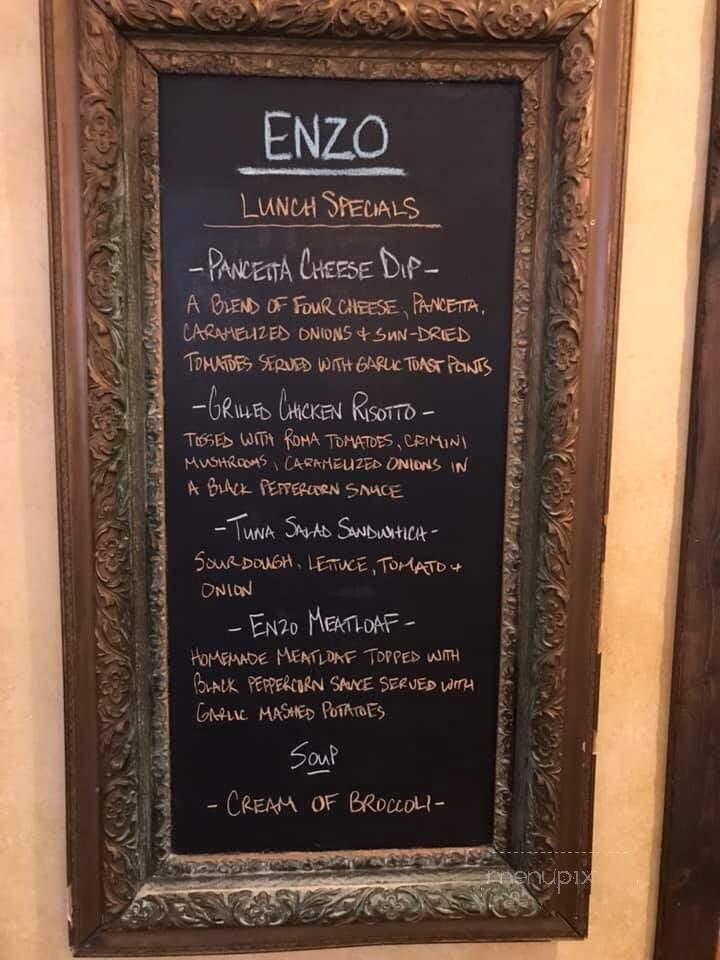 ENZO
LUNCH SPECIALS
- PANCETTA CHEESE DIP -
A BLEND OF FOUR CHEESE, PANCETTA,
CARAMELIZED ONIONS & SUN-DRIED
TOMATOES SERVED WITH GARLIC TOAST POINTS
- GRILLED CHICKEN RISOTTO -
TOSSED WITH ROMA TOMATOES, CRIMINI
MUSHROOMS, CARAMELIZED ONIONS IN
A BLACK PEPPERCORN SAUCE
- TUNA SALAD SANDWHICH -
SOURDOUGH, LETTUCE, TOMATO &
ONION
- ENZO MEATLOAF -
HOMEMADE MEATLOAF TOPPED WITH
BLACK PEPPERCORN SAUCE SERVED WITH
GARLIC MASHED POTATOES
SOUP
- CREAM OF BROCCOLI -
menupix